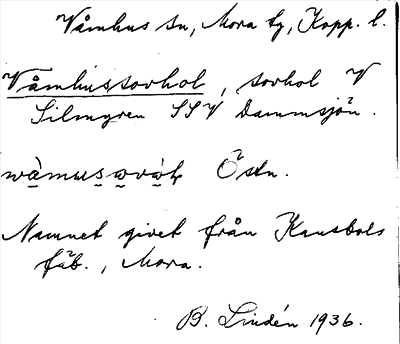 Våmhus sn, Mora tg, Kopp. l.
Våmhussovhol, sovhol V
Silmyren SSV Dammsjön.
wàmusovàł Östn.
Namnet givet från Kansbols
fäb., Mora.
B. Lindén 1936.